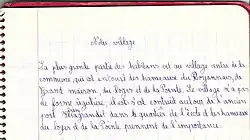 Notre village
La plus grande partie des habitants est au village centre de la
commune, qui est entouré des hameaux du
Grand maison, du Loges et de la Pointe. Le village n'a pas
de forme régulière, il est s'est contruit autour de l'ancien
port d'agrandit dans le quartier de l'école et les hameaux
du Loges et de la Pointe, prennent de l'importance.